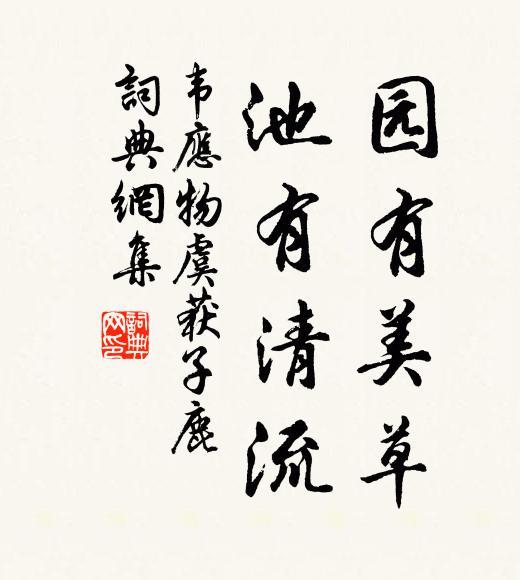 园有美草
池有清流
韦應物虞获子鹿
詞典網集
詞典
网印